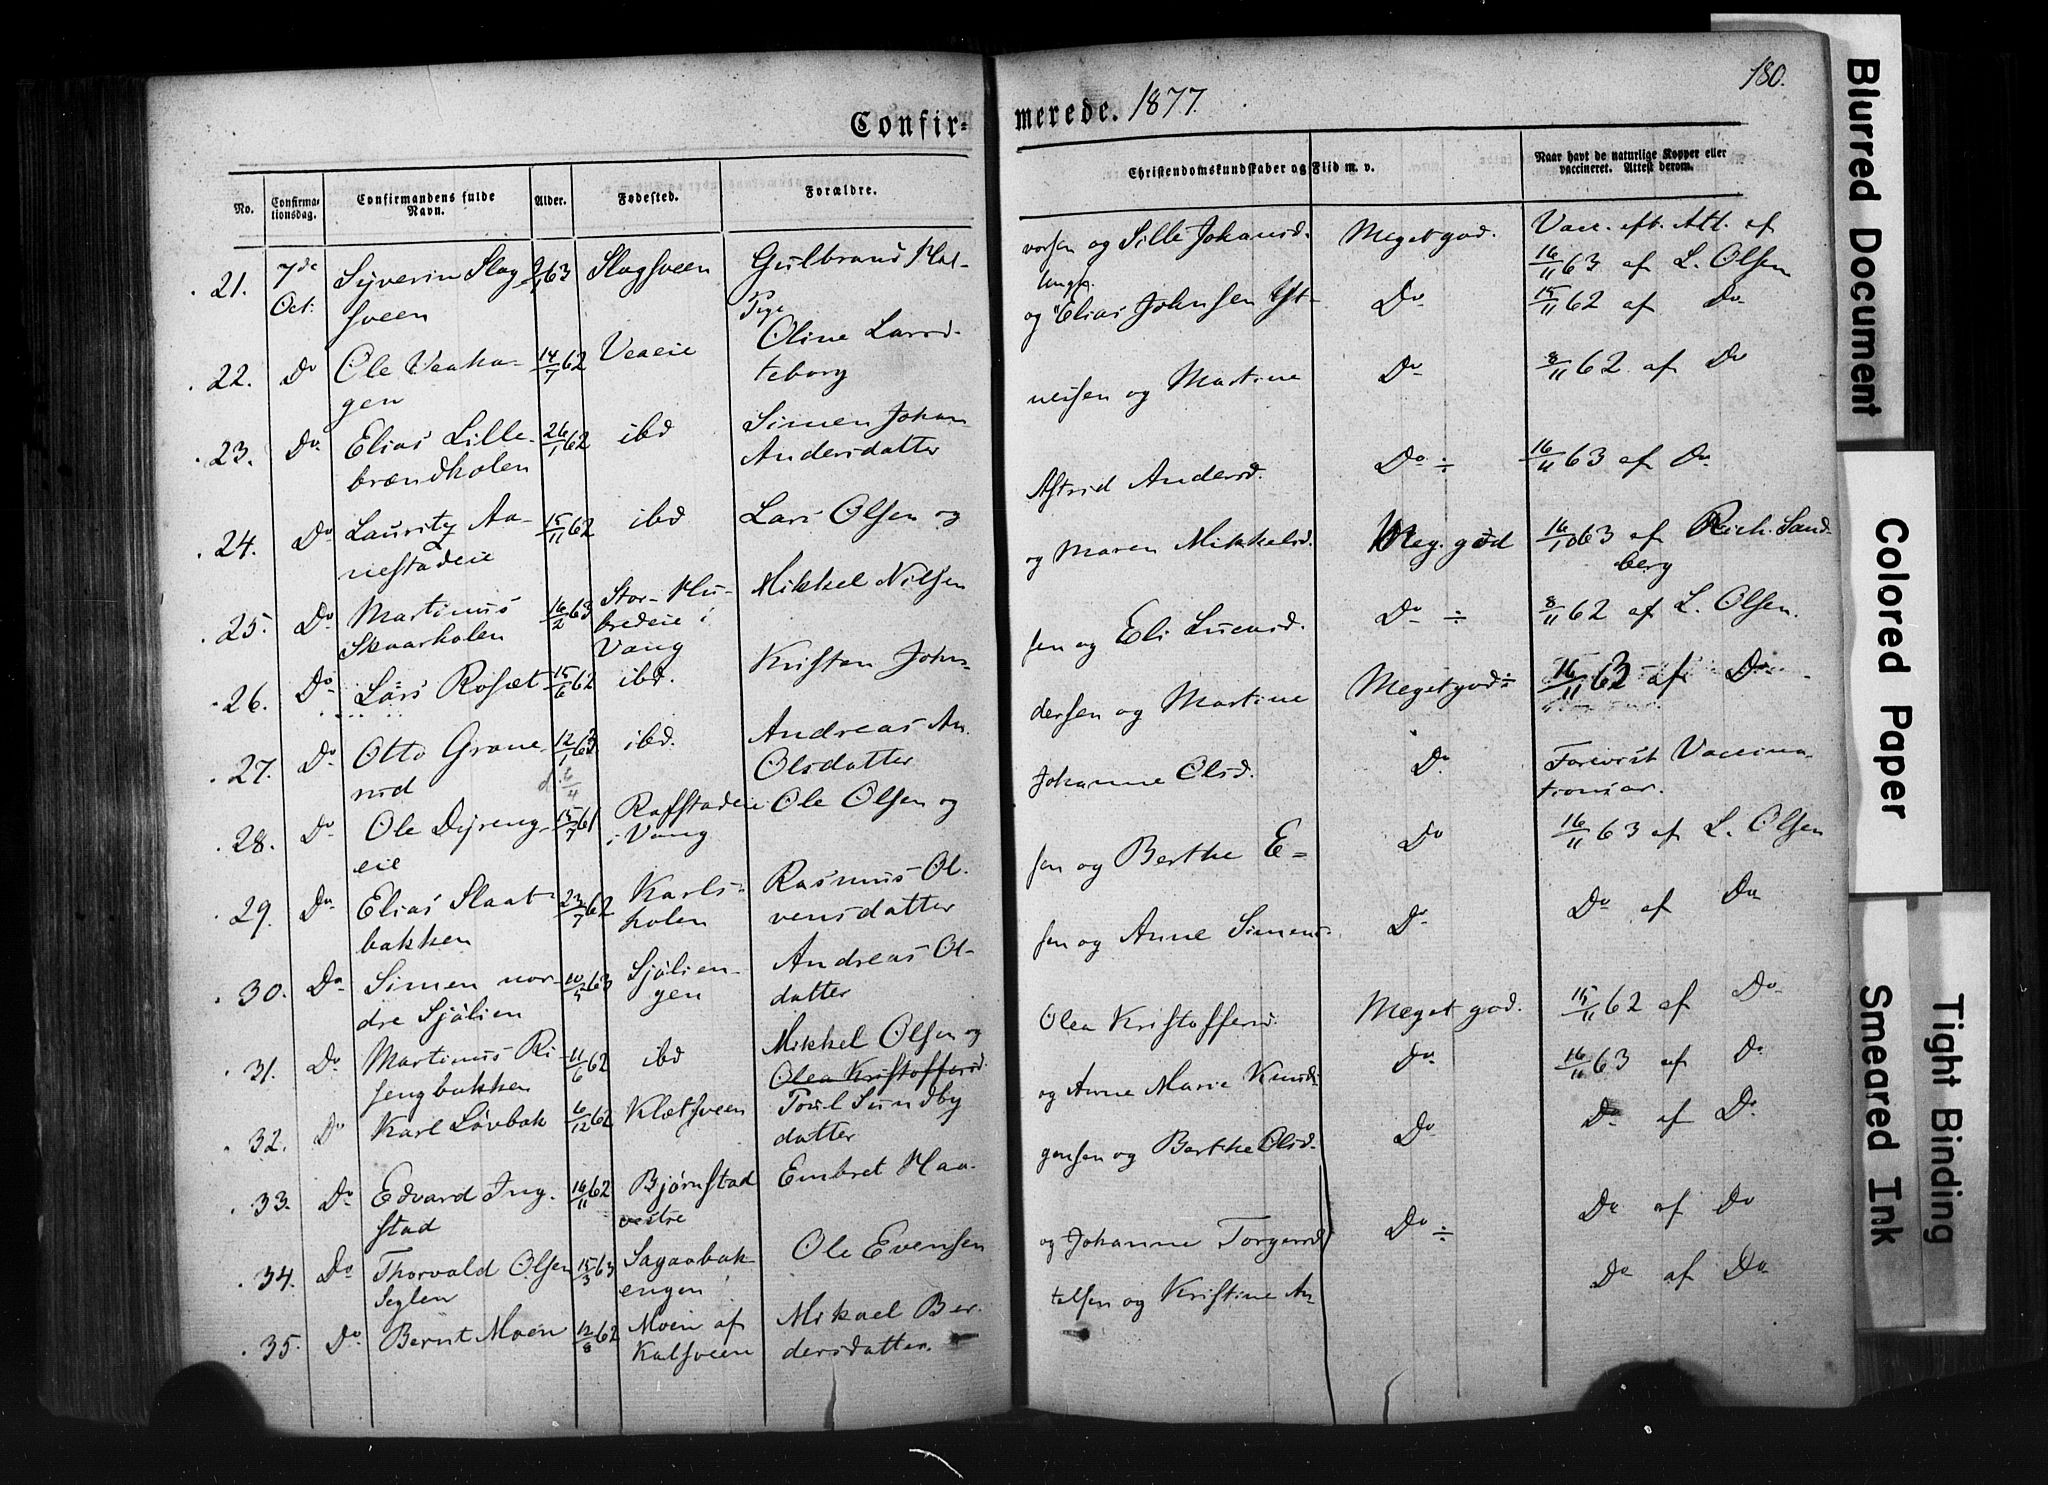 Confir-
merede. 1877.
180.
No. Confirma-tionsdag. Confirmandens fulde Navn. Alder. Fødested. Forældre.
Christendomskundskaber og Flid m. v.
Naar havt de naturlige Kopper eller vaccineret. Attest derom.
21. 7de Syverin Slag- 63 Slagsveen Gulbrand Hal- vorsen og Sille Johansd. Meget god. Vacc. eft. Att. af
Oct. sveen 16/11 63 af L. Olsen
22. Do Ole Vaaha- 14/7 62 Veaeie Pige Oline Larsd. og Ungk. Elias Johnsen Yt- Do 15/11 62 af Do
gen teborg
23. Do Elias Lille- 26/1 62 ibd Simen Johan- nesen og Martine Do 8/11 62 af Do
brændholen Andersdatter
24. Do Lauritz Aa- 15/11 62 ibd Lars Olsen og Astrid Andersd. Do ÷ 16/11 63 af Do
nestadeie
25. Do Martinus 16/2 63 Stor-Hu- Mikkel Nilsen og Maren Mikkelsd. Meg. god 16/10 63 af Rich. Sand-
Skaarholen bredeie i berg
Vang
26. Do Lars Roset 15/6 62 ibd. Kristen John- sen og Eli Lucasd. Do ÷ 8/11 62 af L. Olsen.
27. Do Otto Grane- 12/1 63 ibd. Andreas An- dersen og Martine Meget god ÷ 16/11 63 af Do
rud Olsdatter
28. Do Ole Dyreng- 15/7 61 Rafstadeie Ole Olsen og Johanne Olsd. Do Forevist Vaccina-
eie i Vang tionsar.
29. Do Elias Slaat- 23/7 62 Karls- Rasmus Ol- sen og Berthe E- Do 16/11 63 af L. Olsen
bakken holen vensdatter
30. Do Simen nor- 10/5 63 Sjølien- Andreas Ol- sen og Anne Simens- Do Do af Do
dre Sjølien gen datter
31. Do Martinus Ri- 11/6 62 ibd Mikkel Olsen og Olea Kristoffersd. Meget god. 15/11 62 af Do
sengbakken Olea Kristoffersd.
32. Do Karl Løvbak 6/12 62 Kletsveen Poul Sundby og Anne Marie Knuds- Do 16/11 63 af Do
datter
33. Do Edvard Ing- 16/11 62 Bjørnstad Embret Haa- gensen og Berthe Olsd. Do Do af Do
stad vestre
34. Do Thorvald Olsen 15/3 63 Sagaabak- Ole Evensen og Johanne Torgersd. Do ÷ Do af Do
Seglen engen
35. Do Bernt Moen 12/8 62 Moen af Mikael Ber- telsen og Kristine An- Do af Do
Kalsveen dersdatter.
Blurred Document
Colored Paper
Smeared Ink
Tight Binding